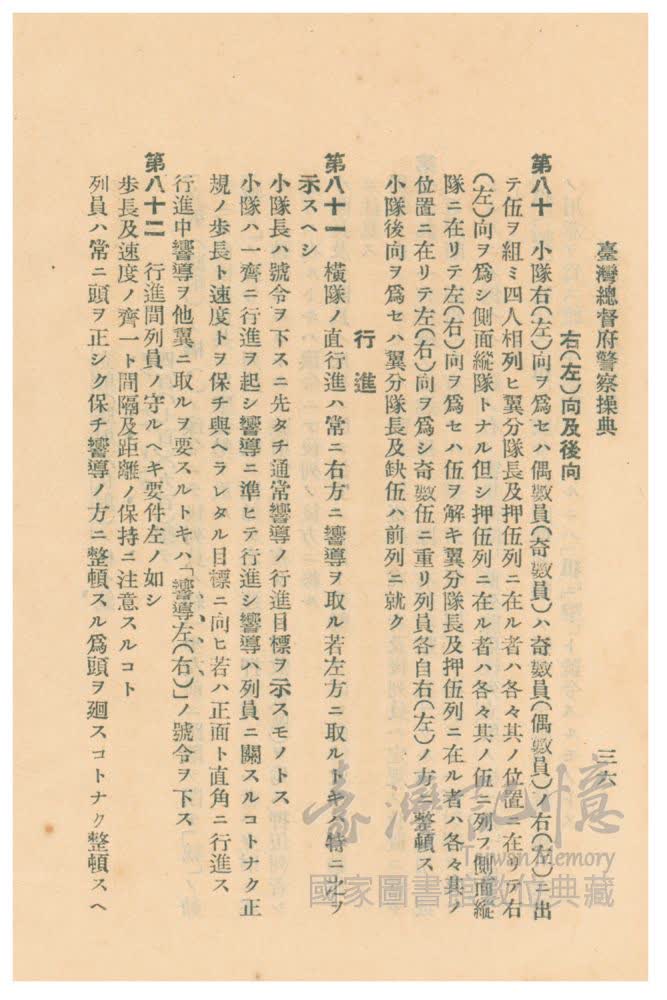 臺灣總督府警察操典
三六
右(左)向及後向
第八十 小隊右(左)向ヲ爲セハ偶數員(奇數員)ハ奇數員(偶數員)ノ右(左)ニ出
テ伍ヲ組ミ四人相列ヒ翼分隊長及押伍列ニ在ル者ハ各々其ノ位置ニ在リテ右
(左)向ヲ爲シ側面縱隊トナル但シ押伍列ニ在ル者ハ各々其ノ伍ニ列フ側面縱
隊ニ在リテ左(右)向ヲ爲セハ伍ヲ解キ翼分隊長及押伍列ニ在ル者ハ各々其ノ
位置ニ在リテ左(右)向ヲ爲シ奇數伍ニ重リ列員各自右(左)ノ方ニ整頓ス
小隊後向ヲ爲セハ翼分隊長及缺伍ハ前列ニ就ク
行進
第八十一 橫隊ノ直行進ハ常ニ右方ニ嚮導ヲ取ル若左方ニ取ルトキハ特ニ之ヲ
示スヘシ
小隊長ハ號令ヲ下スニ先タチ通常嚮導ノ行進目標ヲ示スモノトス
小隊ハ一齊ニ行進ヲ起シ嚮導ニ準ヒテ行進シ嚮導ハ列員ニ關スルコトナク正
規ノ步長ト速度トヲ保チ與ヘラレタル目標ニ向ヒ若ハ正面ト直角ニ行進ス
行進中嚮導ヲ他翼ニ取ルヲ要スルトキハ「嚮導左(右)」ノ號令ヲ下ス
第八十二 行進間列員ノ守ルヘキ要件左ノ如シ
步長及速度ノ齊一ト間隔及距離ノ保持ニ注意スルコト
列員ハ常ニ頭ヲ正シク保チ嚮導ノ方ニ整頓スル爲頭ヲ廻スコトナク整頓スヘ
臺灣記憶
Taiwan Memory
國家圖書館數位典藏